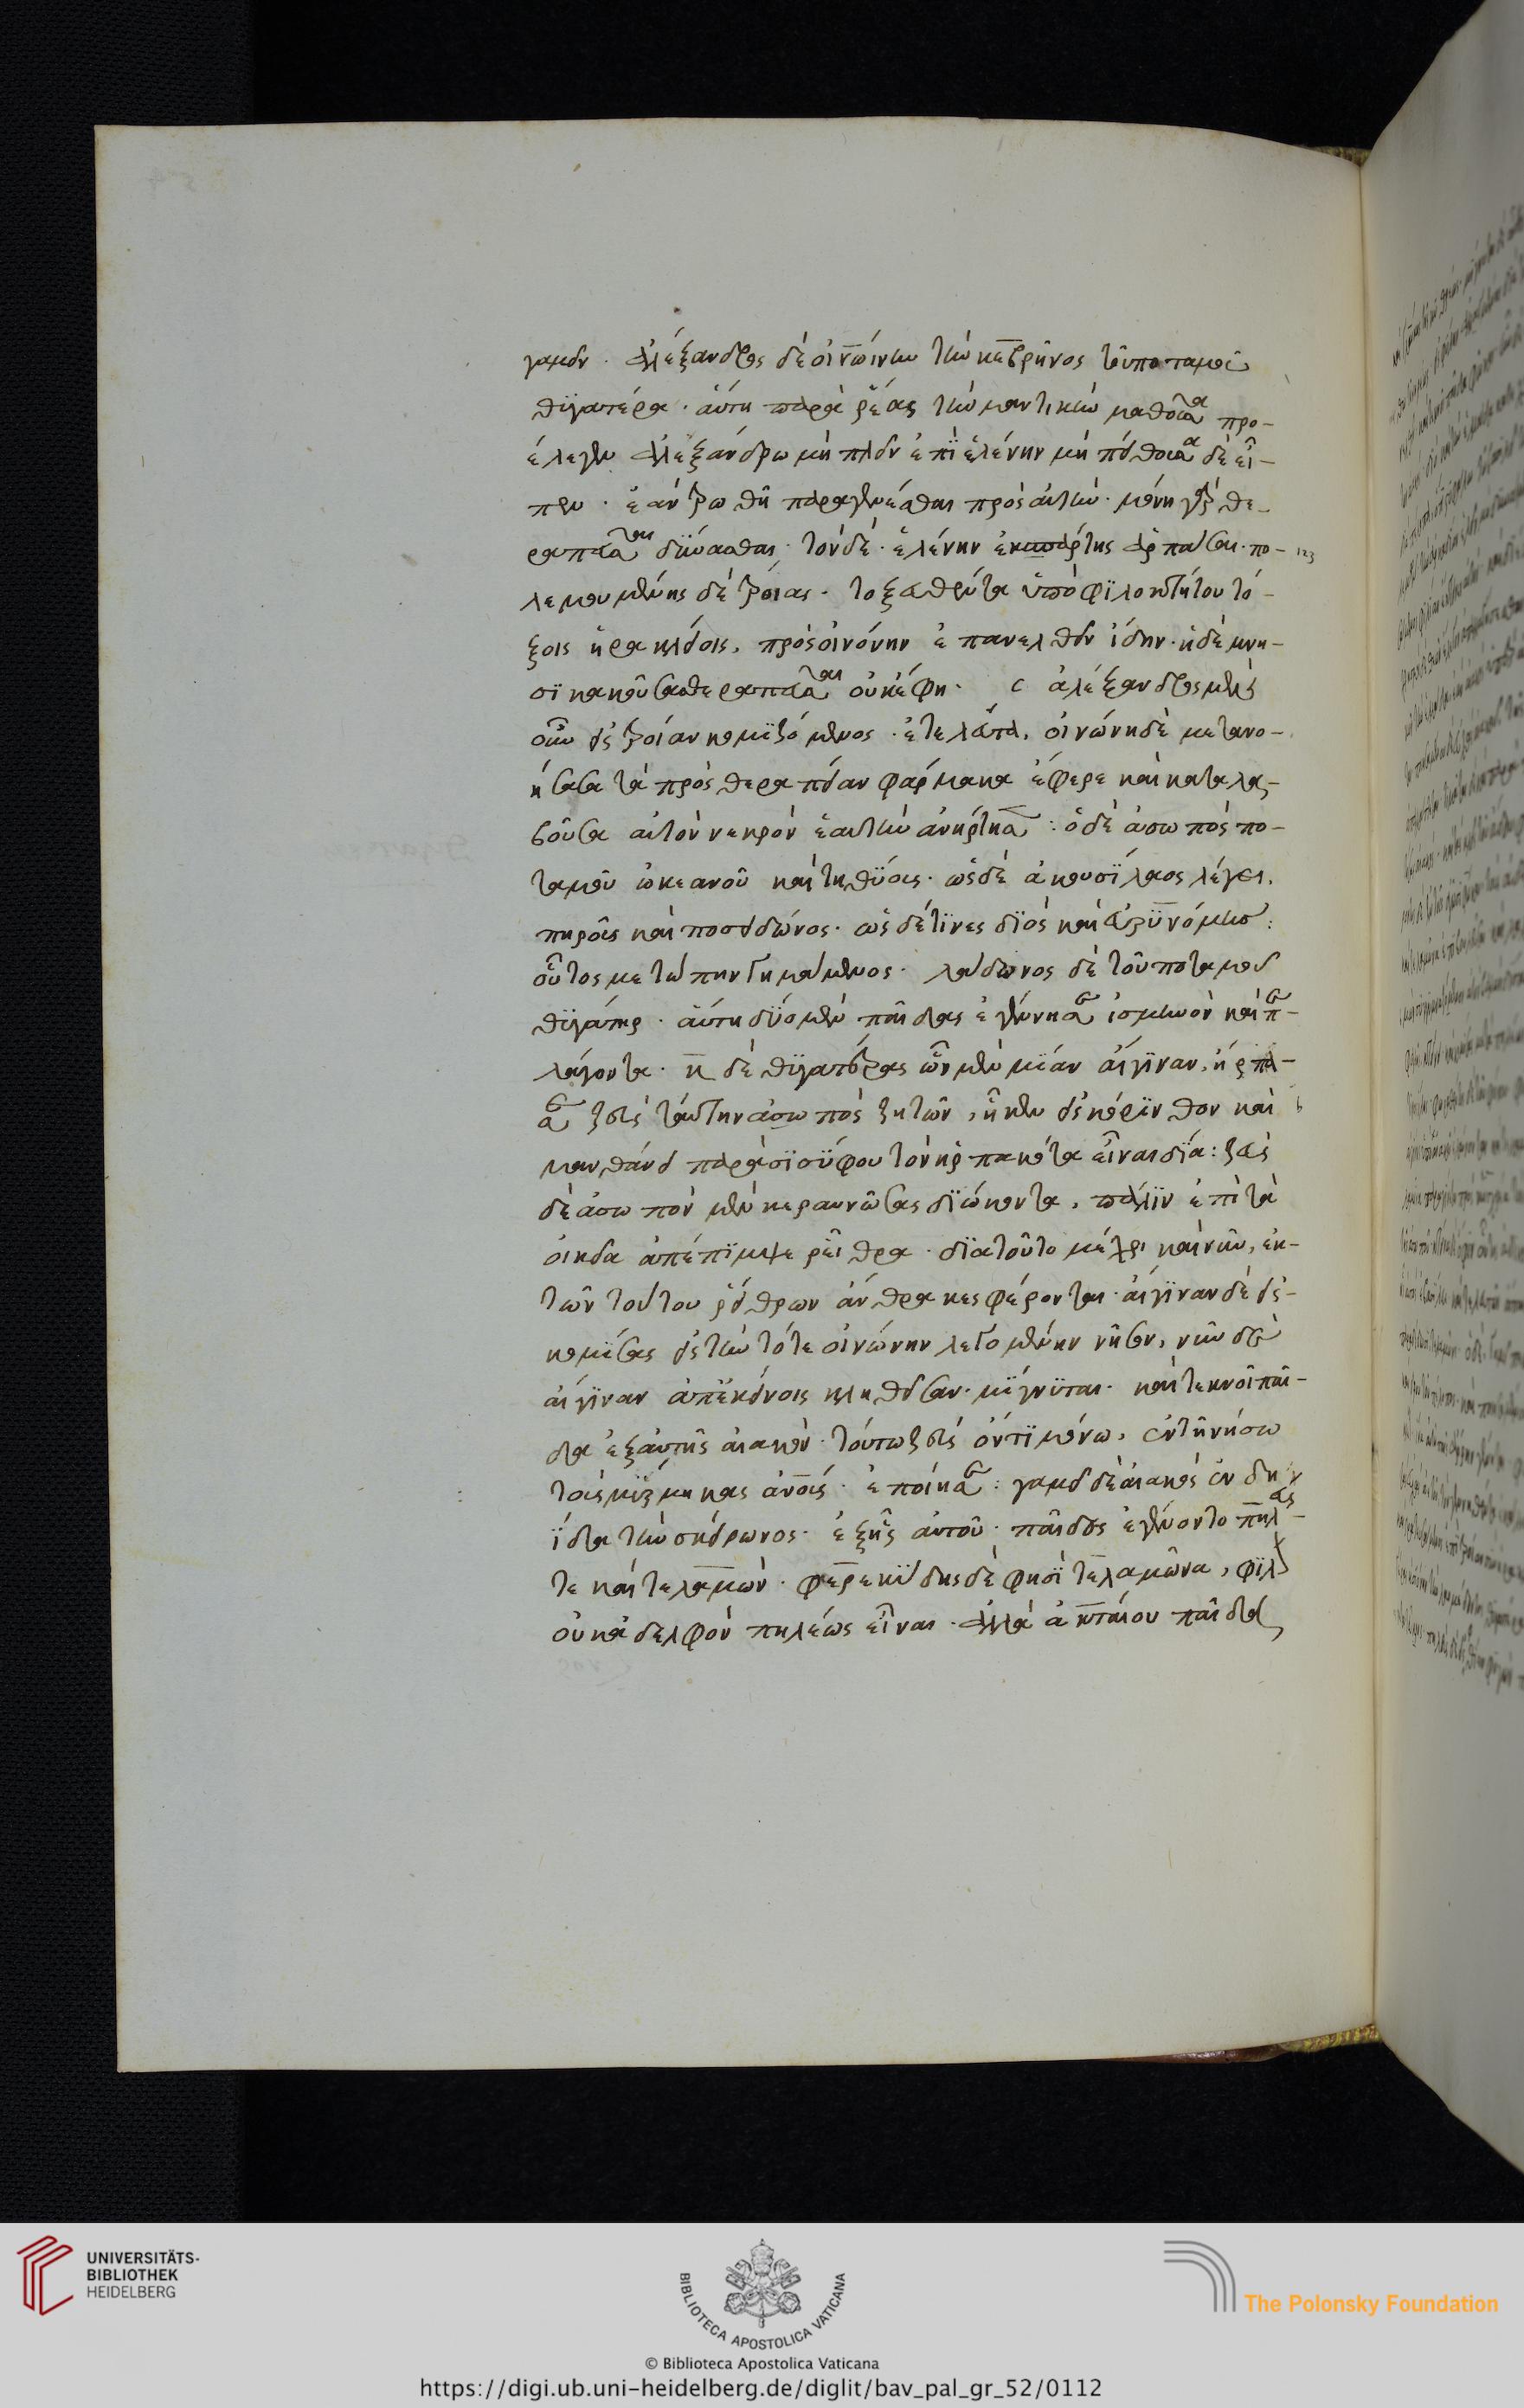 γαμεῖ. ἀλέξανδρος δὲ οἰνώνην τὴν κεβρῆνος τοῦ ποταμοῦ
θϋγατέρα. αὕτη παρὰ ῥέας τὴν μαντικὴν μαθοῦσα προ-
έλεγεν ἀλεξάνδρω μὴ πλεῖν ἐπὶ ἑλένην μὴ πείθουσα δὲ εἶ-
πεν. ἐὰν τρωθῆ παραγενέσθαι πρὸς αὐτήν. μόνην γὰρ θε-
ραπεῦσαι δύνασθαι. τὸν δὲ. ἑλένην ἐκ σπάρτης ἁρπάσαι. πο-
λεμουμένης δὲ τροίας. τοξευθέντα ὑπὸ φϊλοκτήτου τό-
ξοις ἡρακλείοις, πρὸς οἰνόνην ἐπανελθεῖν ἴδην. ἡ δὲ μνη-
σϊκακοῦσα θεραπεύσαι οὐκ ἔφη. ἀλέξανδρος μὲν
οὖν εἰς τροίαν κομϊζόμενος. ἐτελεύτα. οἰνώνη δὲ μετανο-
ήσασα τὰ πρὸς θεραπείαν φάρμακα ἔφερε καὶ καταλα-
βοῦσα αὐτὸν νεκρὸν ἑαυτὴν ἀνήρτησεν: ὁ δὲ ἀσωπὸς πο-
ταμὸς ὠκεανοῦ καὶ τηθϋος. ὡς δὲ ἀκουσϊλαος λέγει.
πηροῦς καὶ ποσειδῶνος. ὡς δέ τϊνες δϊὸς καὶ εὐρϋνόμης:
οὗτος μετώπην γημάμενος. λάδωνος δὲ τοῦ ποταμοῦ
θϋγάτηρ. αὕτη δύο μὲν παῖδας ἐγέννησεν ἰσμηνὸν καὶ π-
λάγοντα. κ δὲ θϋγατέρας ὧν μὲν μϊαν αἴγϊναν, ἥρπα-
σε ζεὺς ταύτην ἀσωπὸς ζητῶν, ἧκεν εἰς κόρϊνθον καὶ
μανθάνει παρὰ σϊσϋφου τὸν ἡρπακότα εἶναι δϊα: ζεὺς
δὲ ἀσωπὸν μὲν κεραυνώσας δϊώκοντα, πάλϊν ἐπὶ τὰ
οἰκεῖα ἀπέπϊμψε ῥεῖθρα. δϊα τοῦτο μέχρι καὶ νῦν, ἐκ
τῶν τούτου ῥείθρων ἄνθρακες φέρονται. αἴγϊναν δὲ εἰς-
κομΐσας εἰς τὴν τότε οἰνώνην λεγομένην νῆσον, νῦν δὲ
αἴγϊναν ἀπ' ἐκείνοις κληθεῖσαν. μΐγνϋται. καὶ τεκνοῖ παῖ-
δα ἐξ αὐτῆς αἰακόν. τούτω ζεὺς ὄντϊ μόνω, ἐν τῆ νήσω
τοὺς μΰρμηκας ἀνους. ἐποίησεν: γαμεῖ δὲ αἰακὸς ἐνδη-
ΐδα τὴν σκείρωνος. ἐξ ἧς αὐτοῦ. παῖδες ἐγένοντο πηλεύς
τε καὶ τελαμών. φερεκϋδης δὲ φησὶ τελαμῶνα, φϊλον
οὐκ ἀδελφὸν πηλέως εἶναι. ἀλλὰ ἀκταίου παῖδα
UNIVERSITÄTS-
BIBLIOTHEK
HEIDELBERG
BIBLIOTECA APOSTOLICA VATICANA
The Polonsky Foundation
© Biblioteca Apostolica Vaticana
https://digi.ub.uni-heidelberg.de/diglit/bav_pal_gr_52/0112